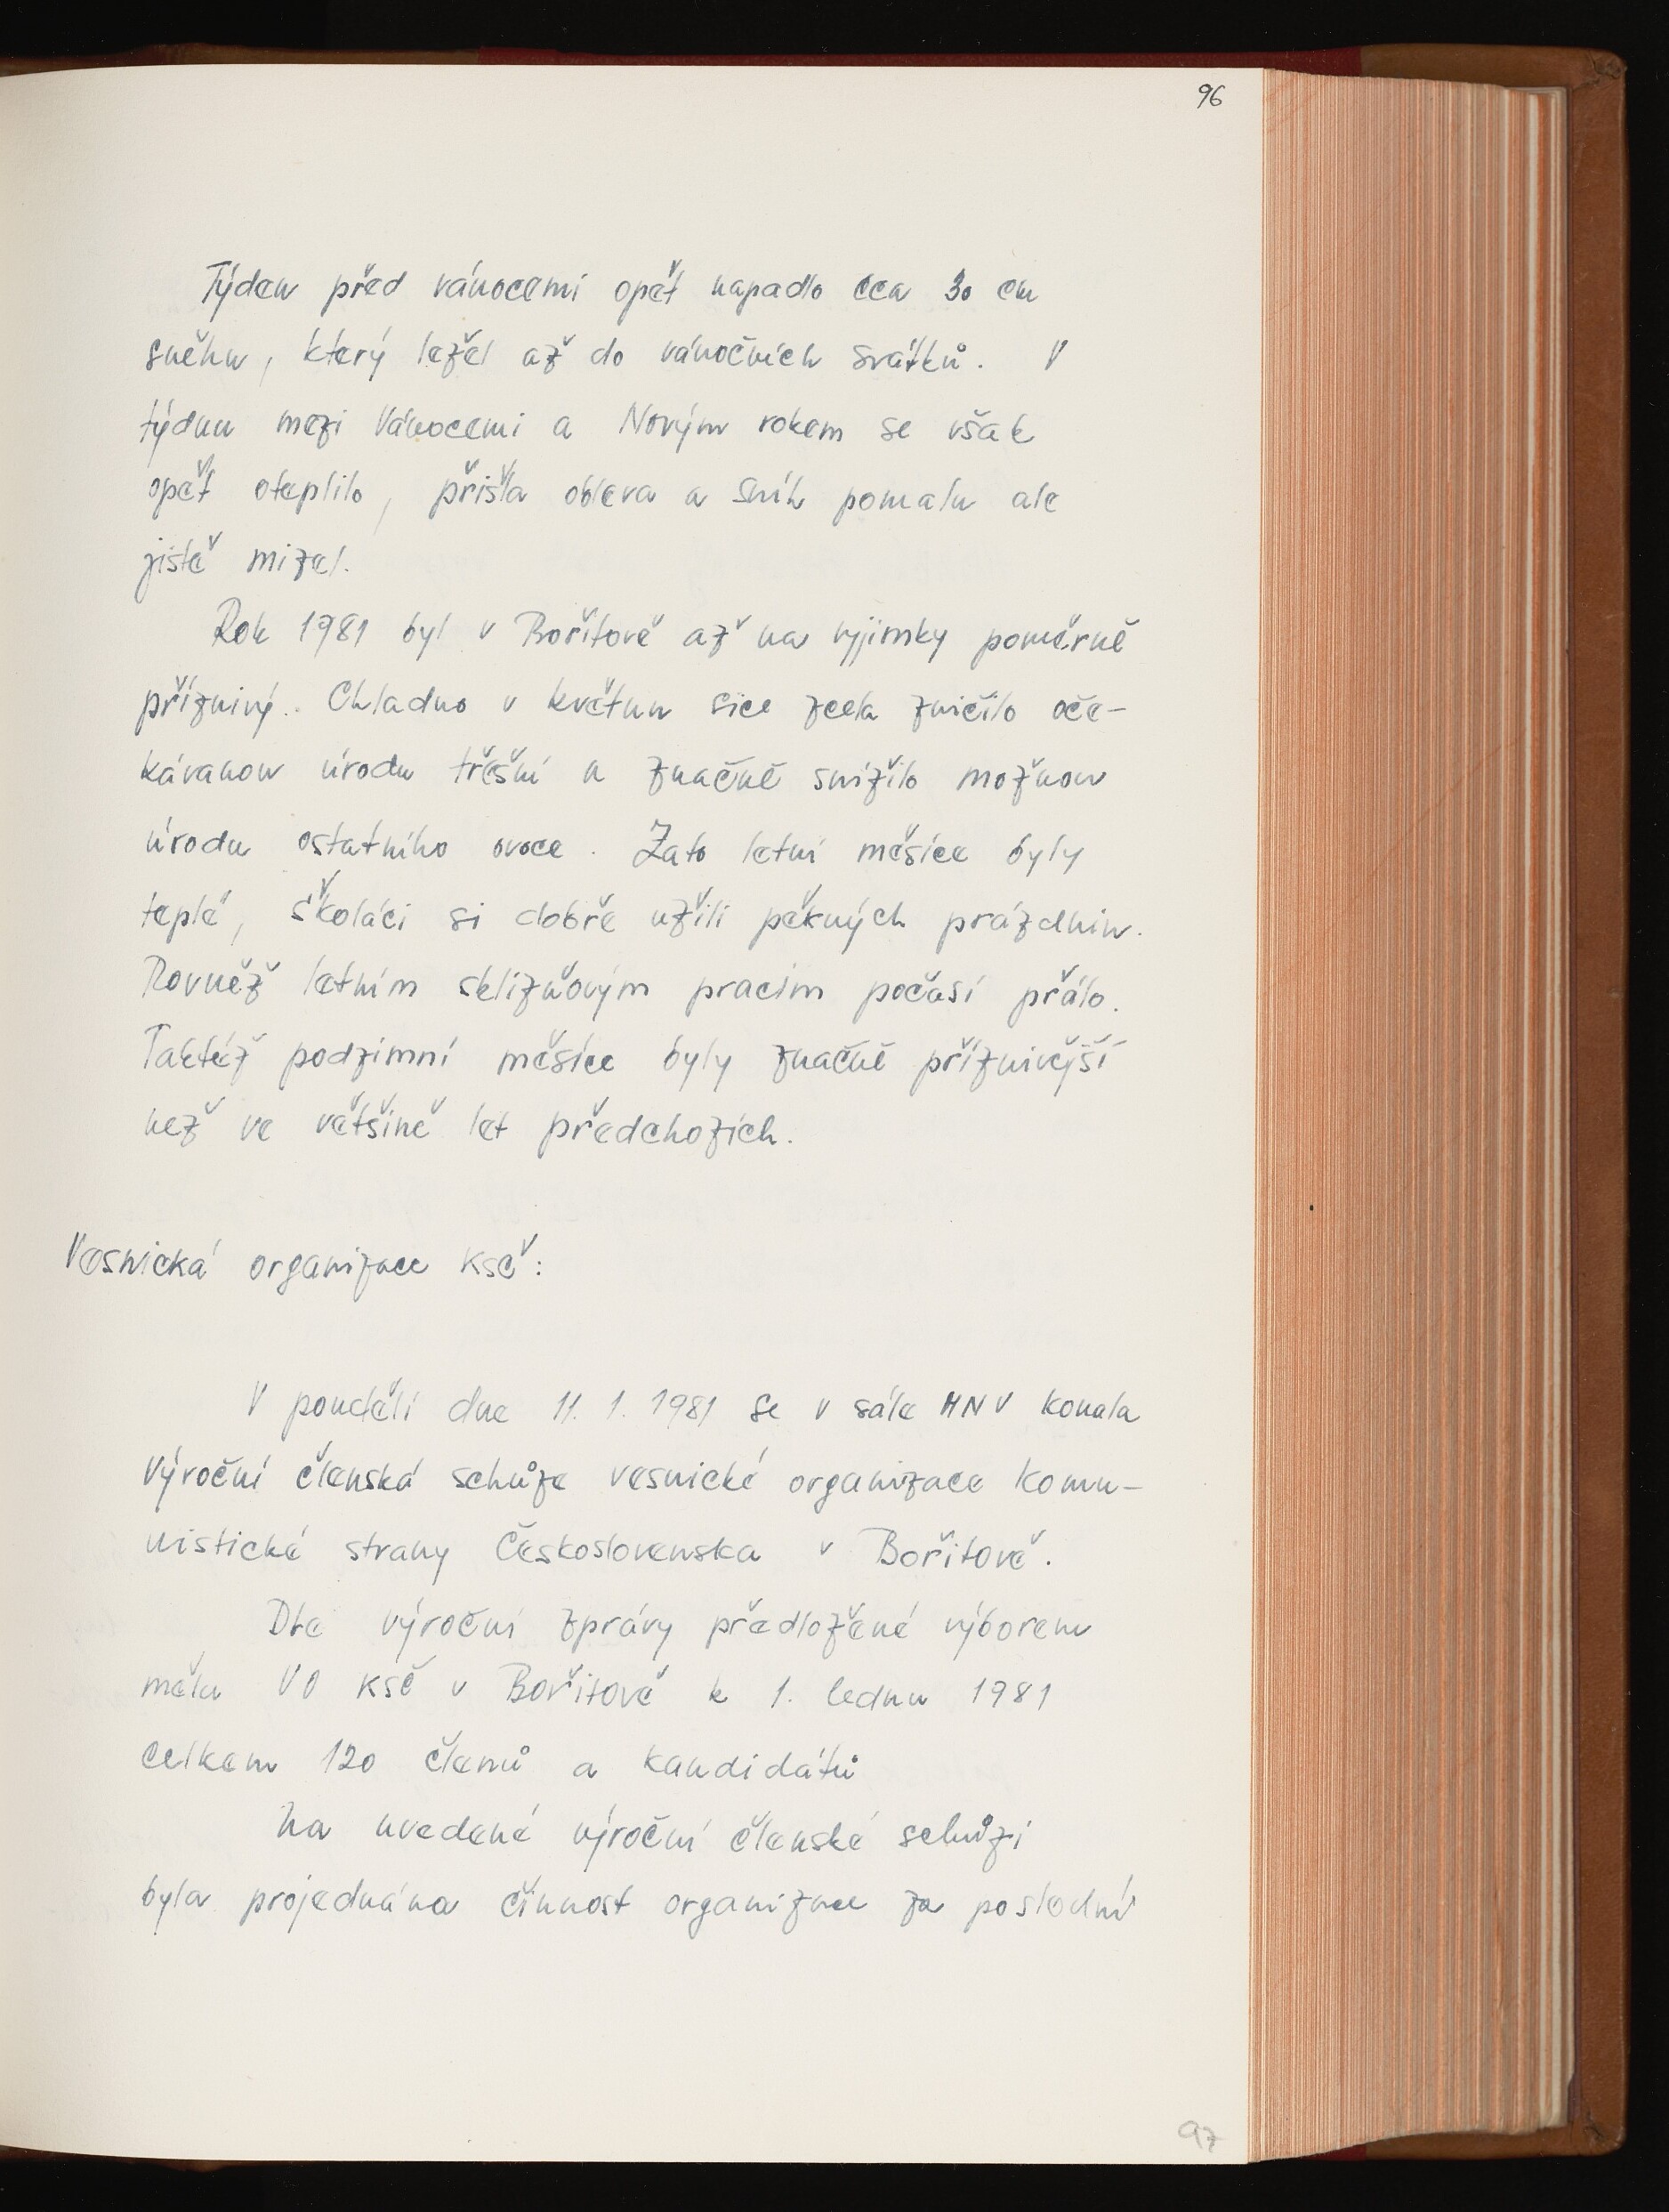 96
Týden před vánocemi opět napadlo cca 30 cm
sněhu, který ležel až do vánočních svátků. V
týdnu mezi Vánocemi a Novým rokem se však
opět oteplilo, přišla obleva a sníh pomalu ale
jistě mizel.
Rok 1981 byl v Bořitově až na vyjímky poměrně
příznivý. Chladno v květnu sice zcela zničilo oče-
kávanou úrodu třešní a značně snížilo možnou
úrodu ostatního ovoce. Zato letní měsíce byly
teplé, školáci si dobře užili pěkných prázdnin.
Rovněž letním sklizňovým pracím počasí přálo.
Taktéž podzimní měsíce byly značně příznivější
než ve většině let předchozích.
Vesnická organizace KSČ:
V pondělí dne 11. 1. 1981 se v sále MNV konala
Výroční členská schůze vesnické organizace Komu-
nistické strany Československa v Bořitově.
Dle výroční zprávy předložené výborem
měla VO KSČ v Bořitově k 1. lednu 1981
celkem 120 členů a kandidátů
Na uvedené výroční členské schůzi
byla projednána činnost organizace za poslední
97